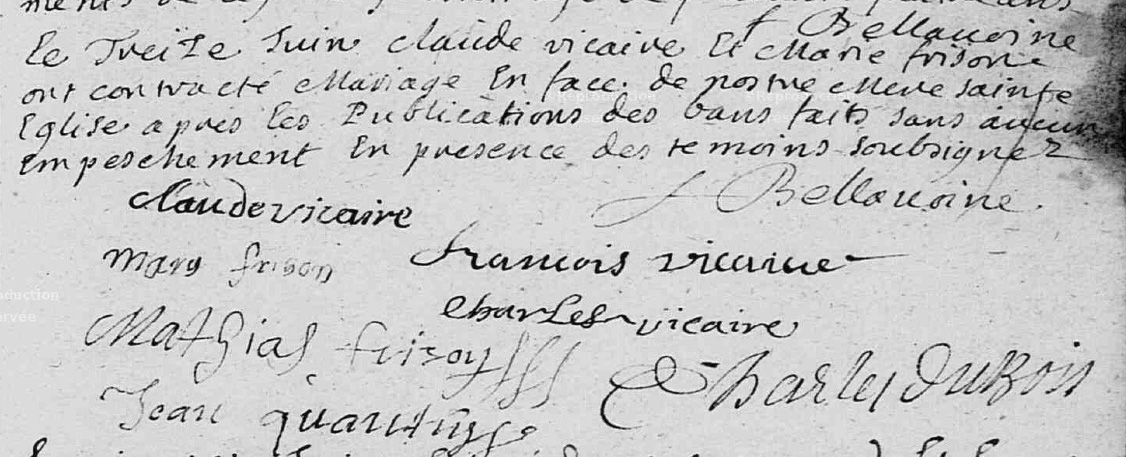 f Bellavoine
Le Treize Juin claude vicaire Et Marie frison
ont contracté Mariage En face de nostre Mere sainte
Eglise apres les Publications des bans faits sans aucun
Empeschement En presence des temoins soubsignez
claude vicaire
f Bellavoine
mary frison
francois vicaire
Charles vicaire
Mathias frison
Charles duBois
Jean quantin